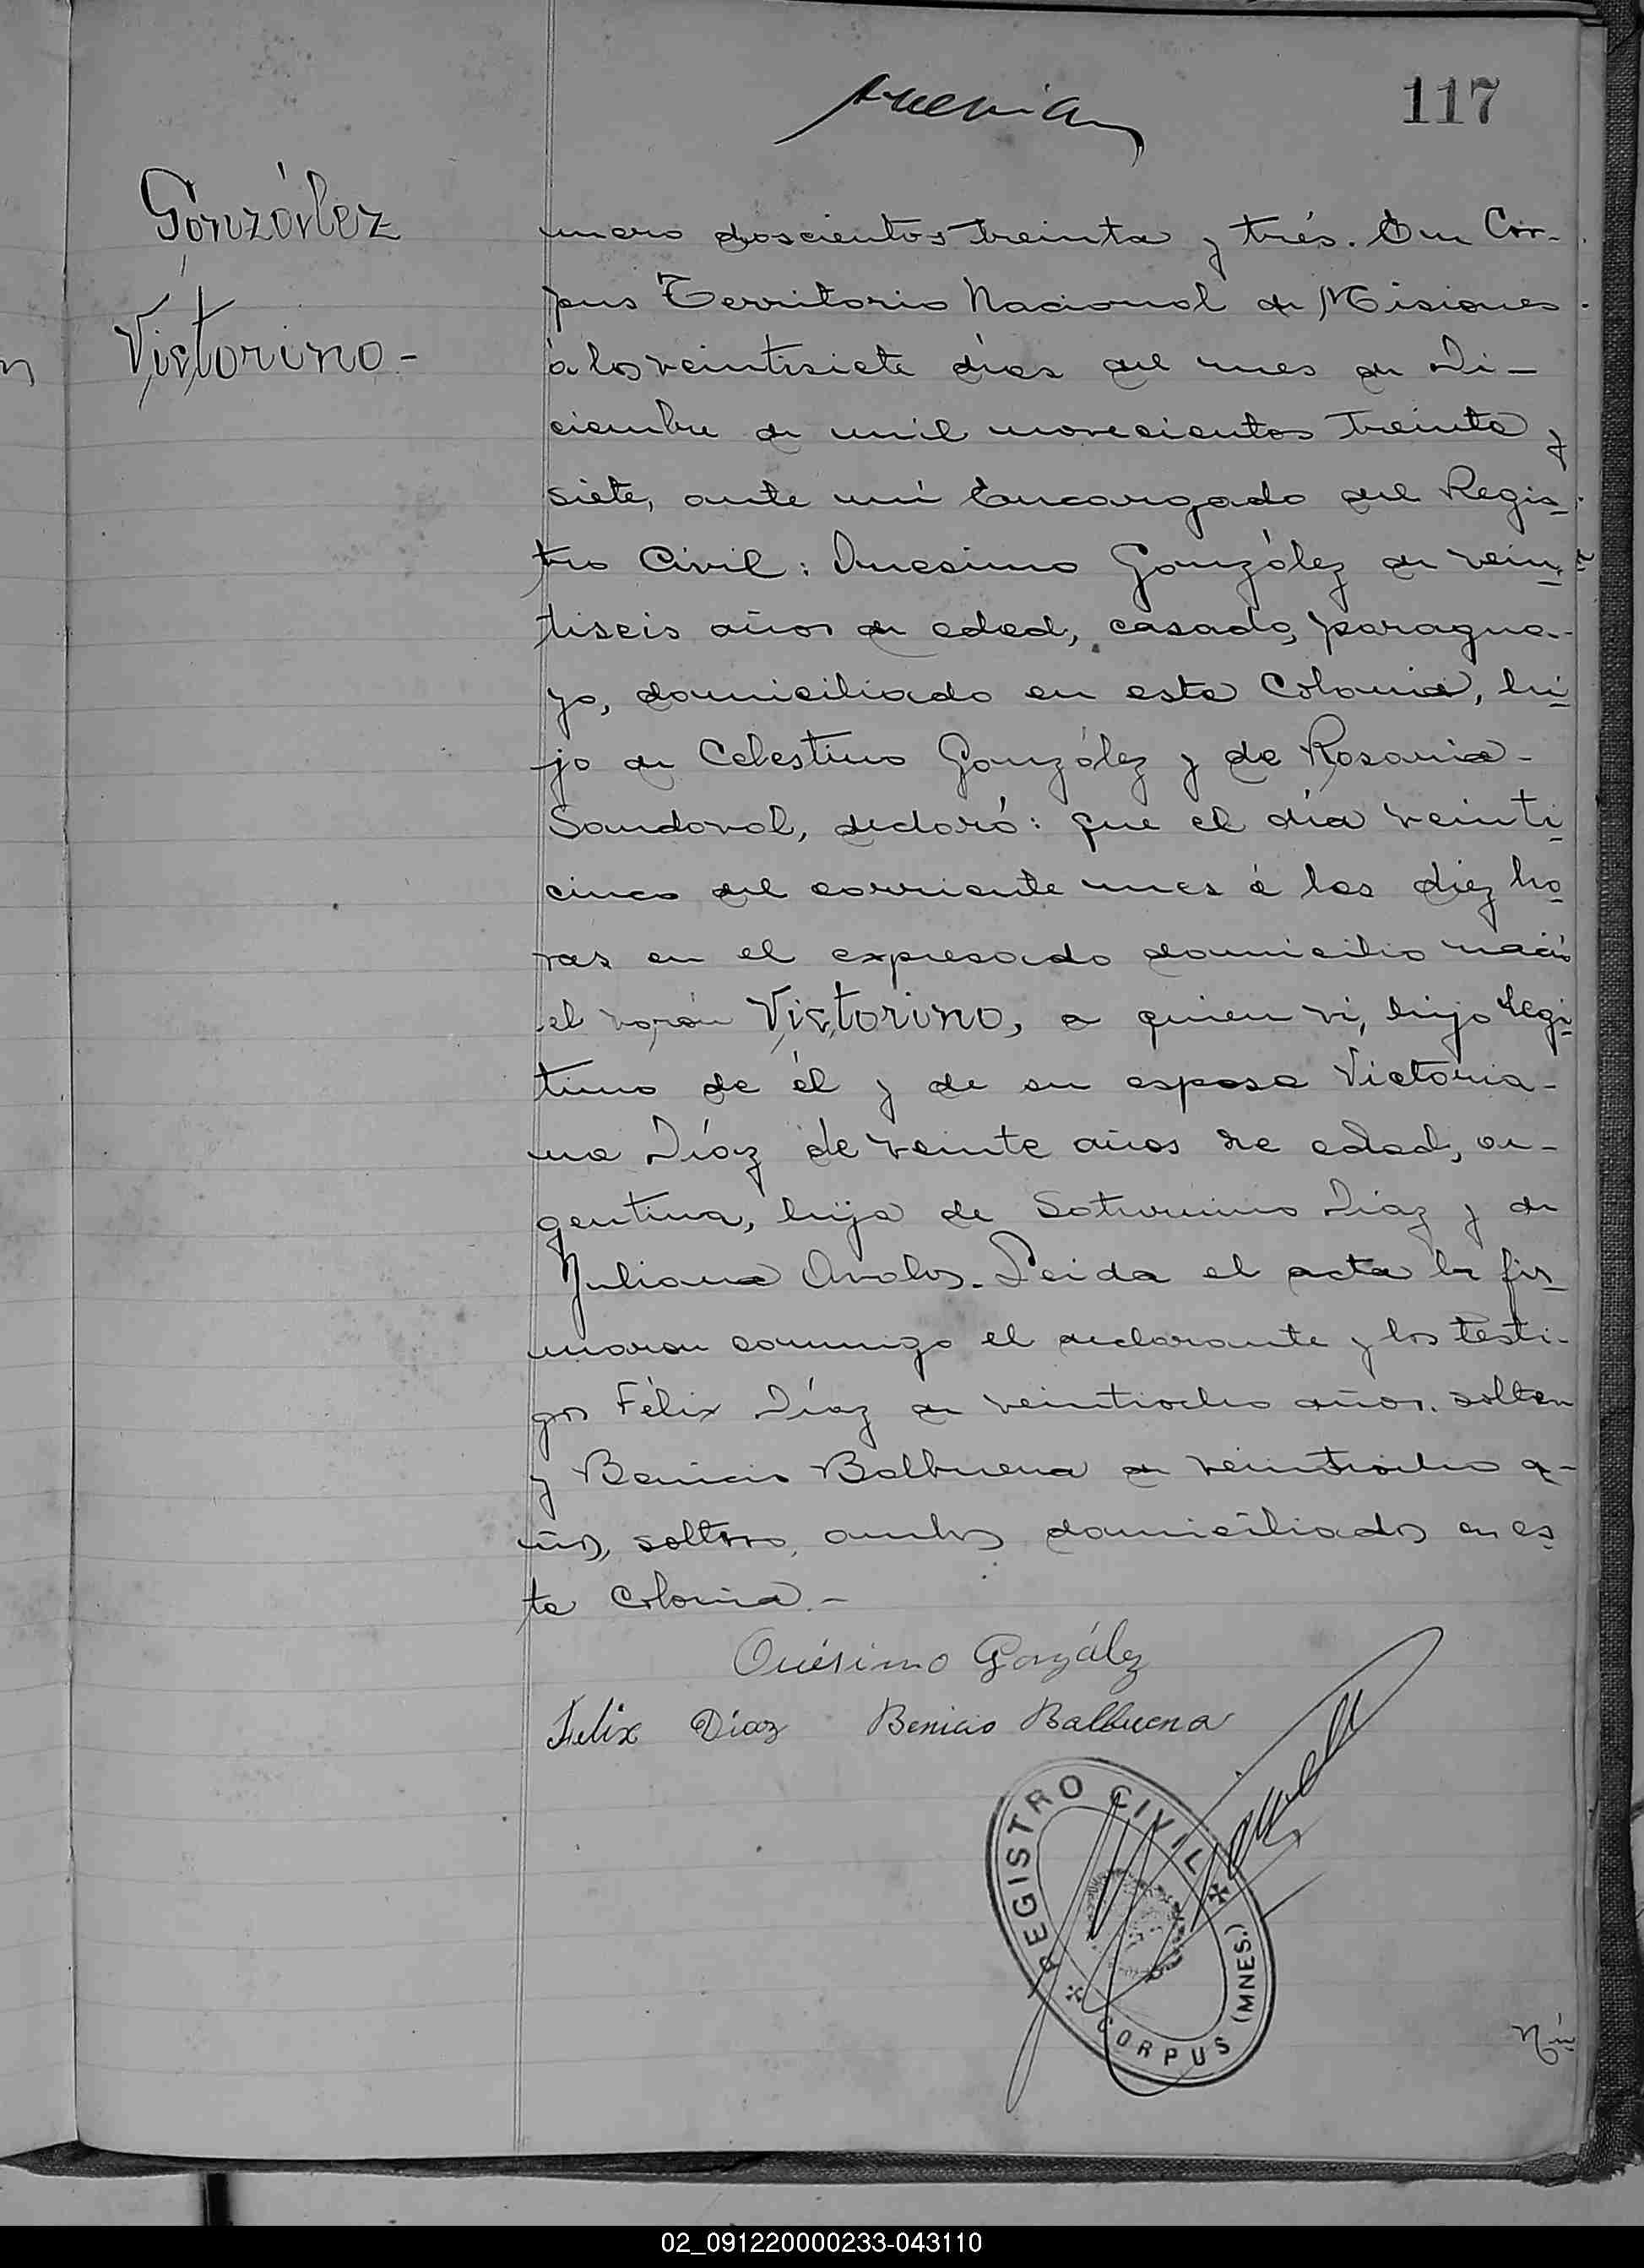 117
González
Victorino-
mero doscientos treinta y trés. En Cor-
pus Territorio Nacional de Misiones
á los veintisiete días del mes de Di-
ciembre de mil novecientos treinta y
siete, ante mí Encargado del Regis-
tro Civil: Onesimo González de vein-
tiseis años de edad, casado, paragua-
yo, domiciliado en esta Colonia, hi-
jo de Celestino González y de Rosaria
Sandoval, declaró: que el día veinti-
cinco del corriente mes á las diez ho-
ras en el expresado domicilio nació
el varón Victorino, a quien ví, hijo legi-
timo de él y de su esposa Victoria-
na Díaz de veinte años de edad, ar-
gentina, hija de Saturnino Díaz y de
Juliana Avalos. Leida el acta la fir-
maron conmigo el declarante y los testi-
gos Félix Díaz de veintiocho años, soltero
y Benicio Balbuena de veintiocho a-
ños, soltero, ambos domiciliados en es-
ta Colonia.-
Onésimo González
Felix Díaz Benicio Balbuena
REGISTRO CIVIL
CORPUS (MNES.)
Nú
02_091220000233-043110